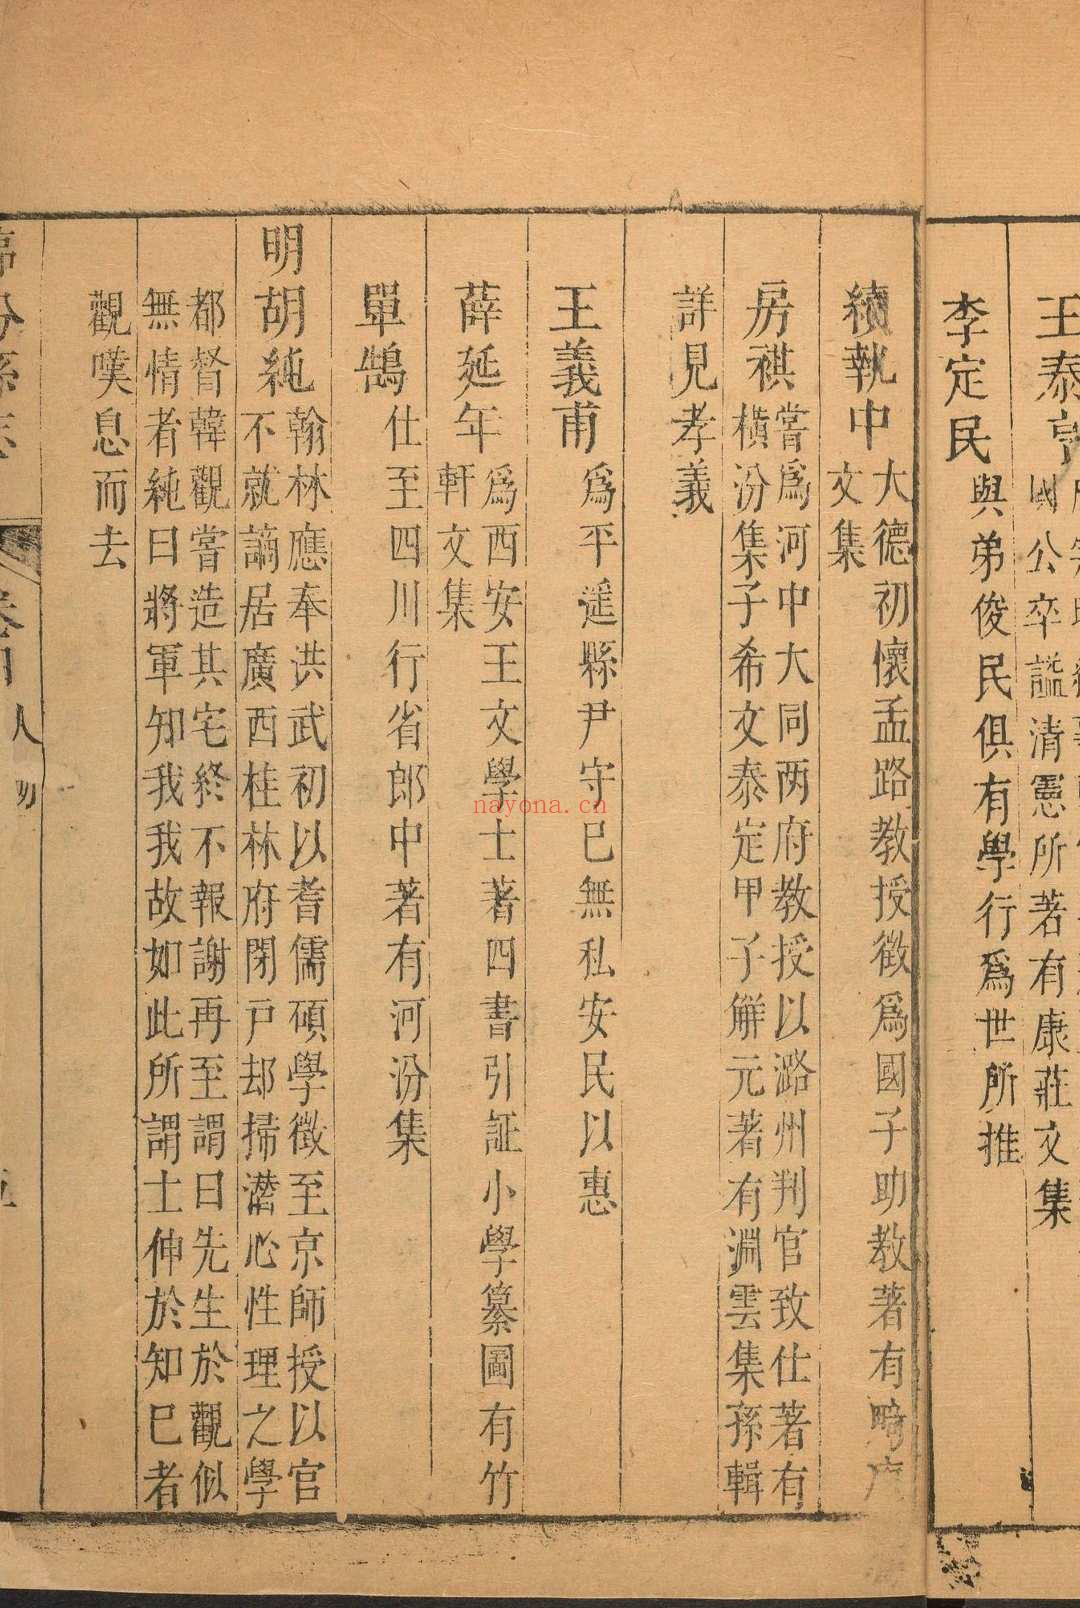 王泰亨
國公卒諡清憲所著有康莊文集
李定民
與弟俊民俱有學行爲世所推
續執中
大德初懷孟路教授徵爲國子助教著有
文集
房祺
嘗爲河中大同两府教授以潞州判官致仕著有
橫汾集子希文泰定甲子解元著有淵雲集孫輯
詳見孝義
王義甫
爲平遥縣尹守巳無私安民以惠
薛延年
爲西安王文學士著四書引証小學纂圖有竹
軒文集
單鵠
仕至四川行省郎中著有河汾集
明胡純
翰林應奉洪武初以耆儒碩學徵至京師授以官
不就謫居廣西桂林府閉戸却掃潜心性理之學
都督韓觀嘗造其宅終不報謝再至謂曰先生於觀似
無情者純曰將軍知我我故如此所謂士伸於知巳者
觀嘆息而去
汾縣志
人物
nayona.cn